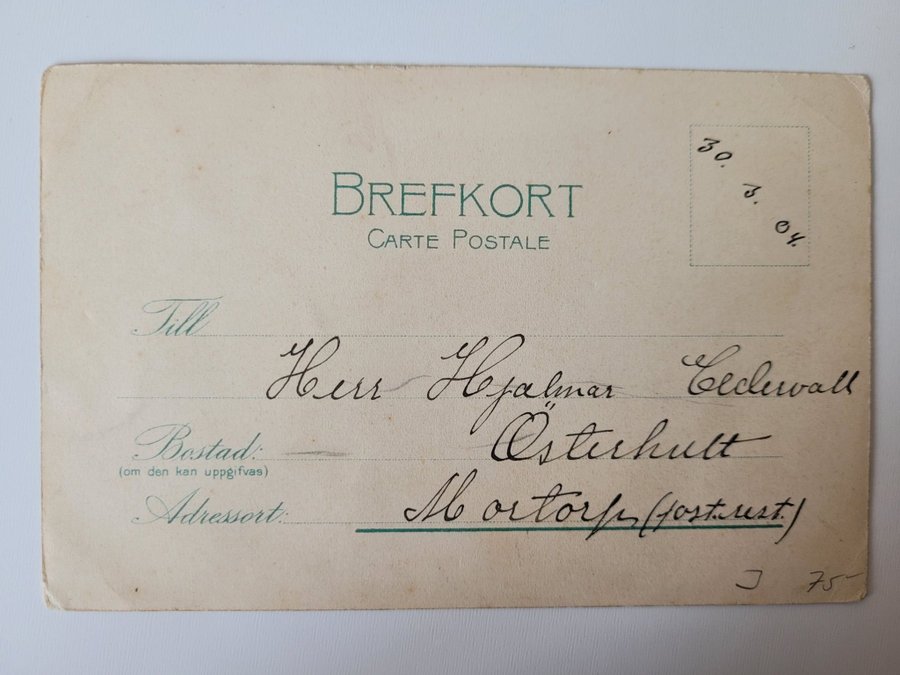 BREFKORT
CARTE POSTALE
30.
3.
04.
Till
Herr Hjalmar Cedervall
Bostad:
Österhult
(om den kan uppgifvas)
Adressort:
Mortorp (post.rest.)
J 75-